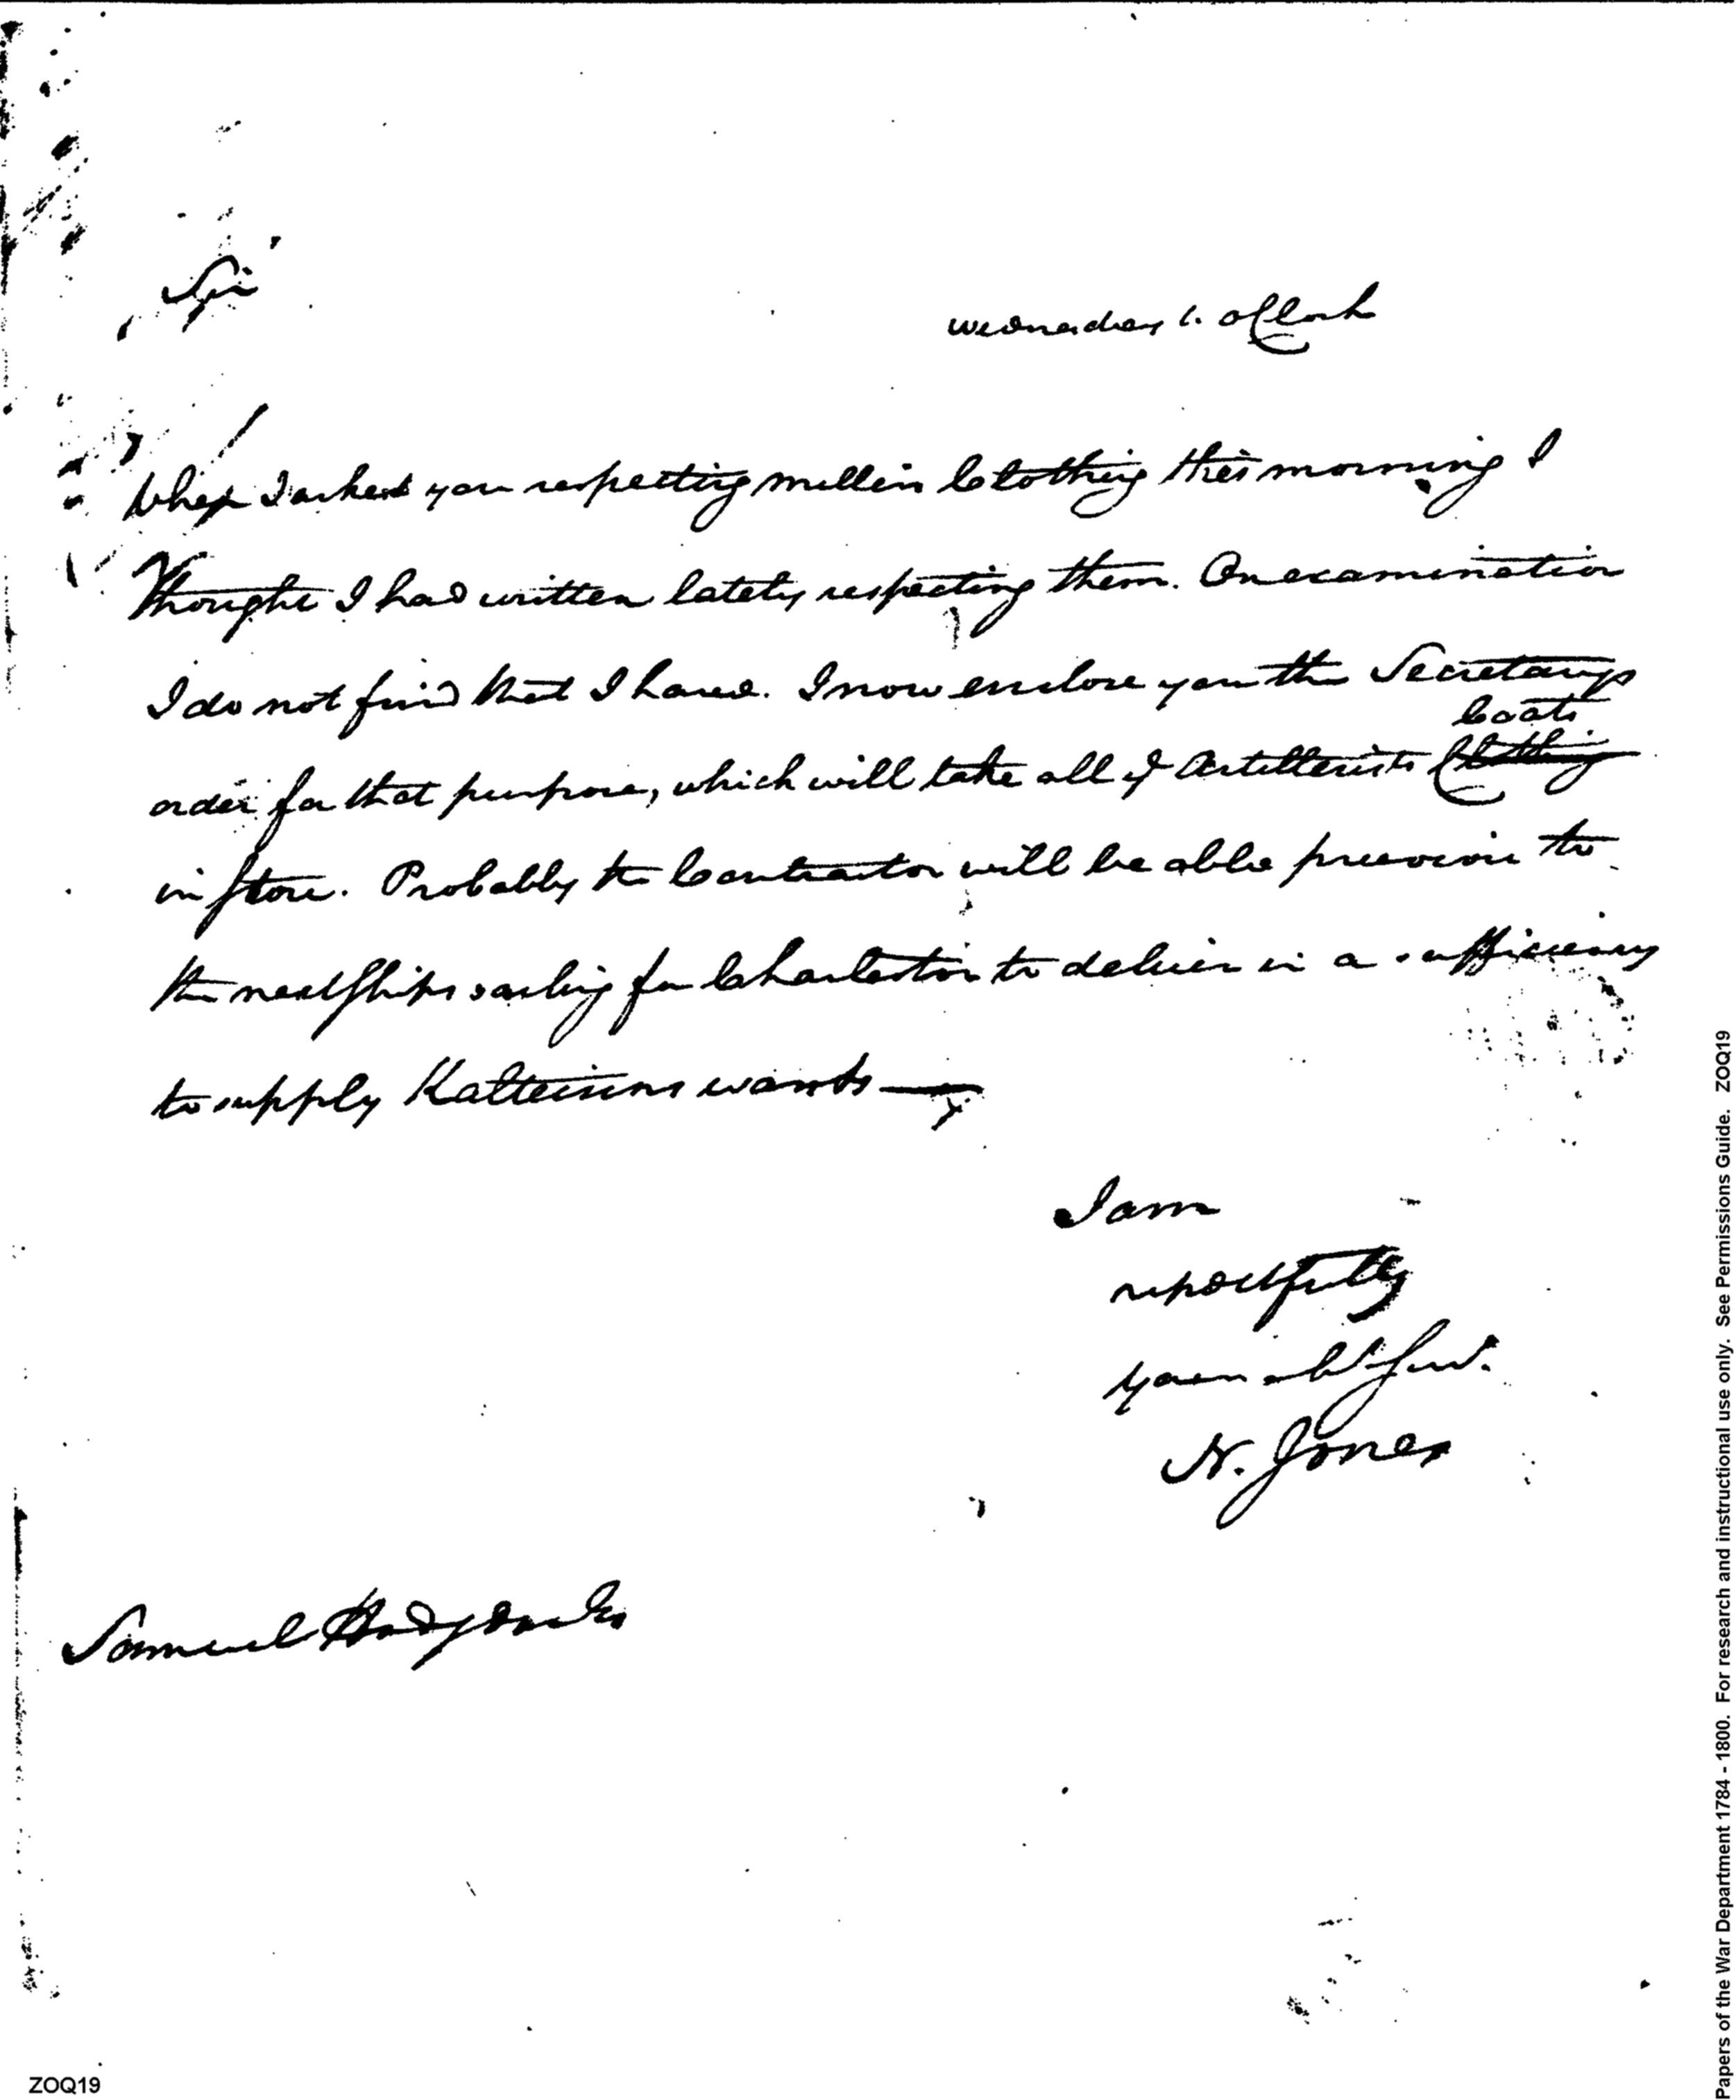 Sir
Wednesday 1. oClock
When I asked you respecting Mullin Clothing this morning I
thought I had written lately respecting them. On examination
I do not find that I have. I now enclose you the Secretarys
Coats
order for that purpose, which will take all ye Artillerists Clothing
in Store. Probably the Contractor will be able previous to
the next Ships sailing for Charleston to deliver in a sufficiency
to supply Kalteisens wants —
I am
respectfully
your obt Servt.
N. Jones
Samuel Hodgdon Esq
Papers of the War Department 1784 - 1800. For research and instructional use only. See Permissions Guide. ZOQ19
ZOQ19